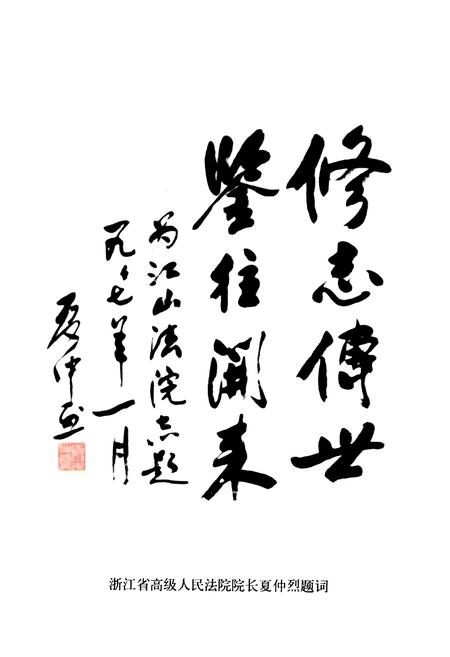 修志傳世
鑒往開来
为江山法院志题
一九九七年一月
夏仲烈
浙江省高级人民法院院长夏仲烈题词